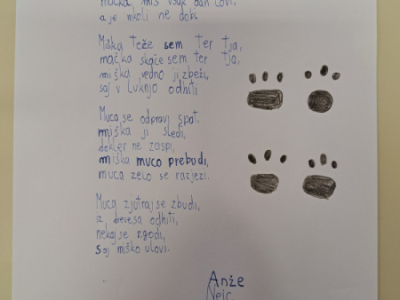 mačka miš vsak dan lovi,
a je nikoli ne dobi.
Miška teže sem ter tja,
mačka skače sem ter tja,
miška vedno ji zbeži,
saj v luknjo odhiti
Muca se odpravi spat,
miška ji sledi,
dokler ne zaspi,
miška muco prebudi,
muca zelo se razjezi.
Muca zjutraj se zbudi,
iz brloga odhiti,
nekaj se zgodi,
saj miško ulovi.
Anže
Nejc